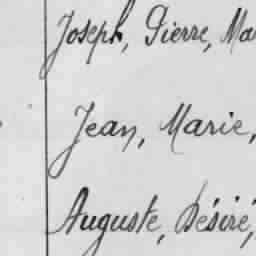 Joseph, Pierre, Ma
Jean, Marie,
Auguste, Désiré,